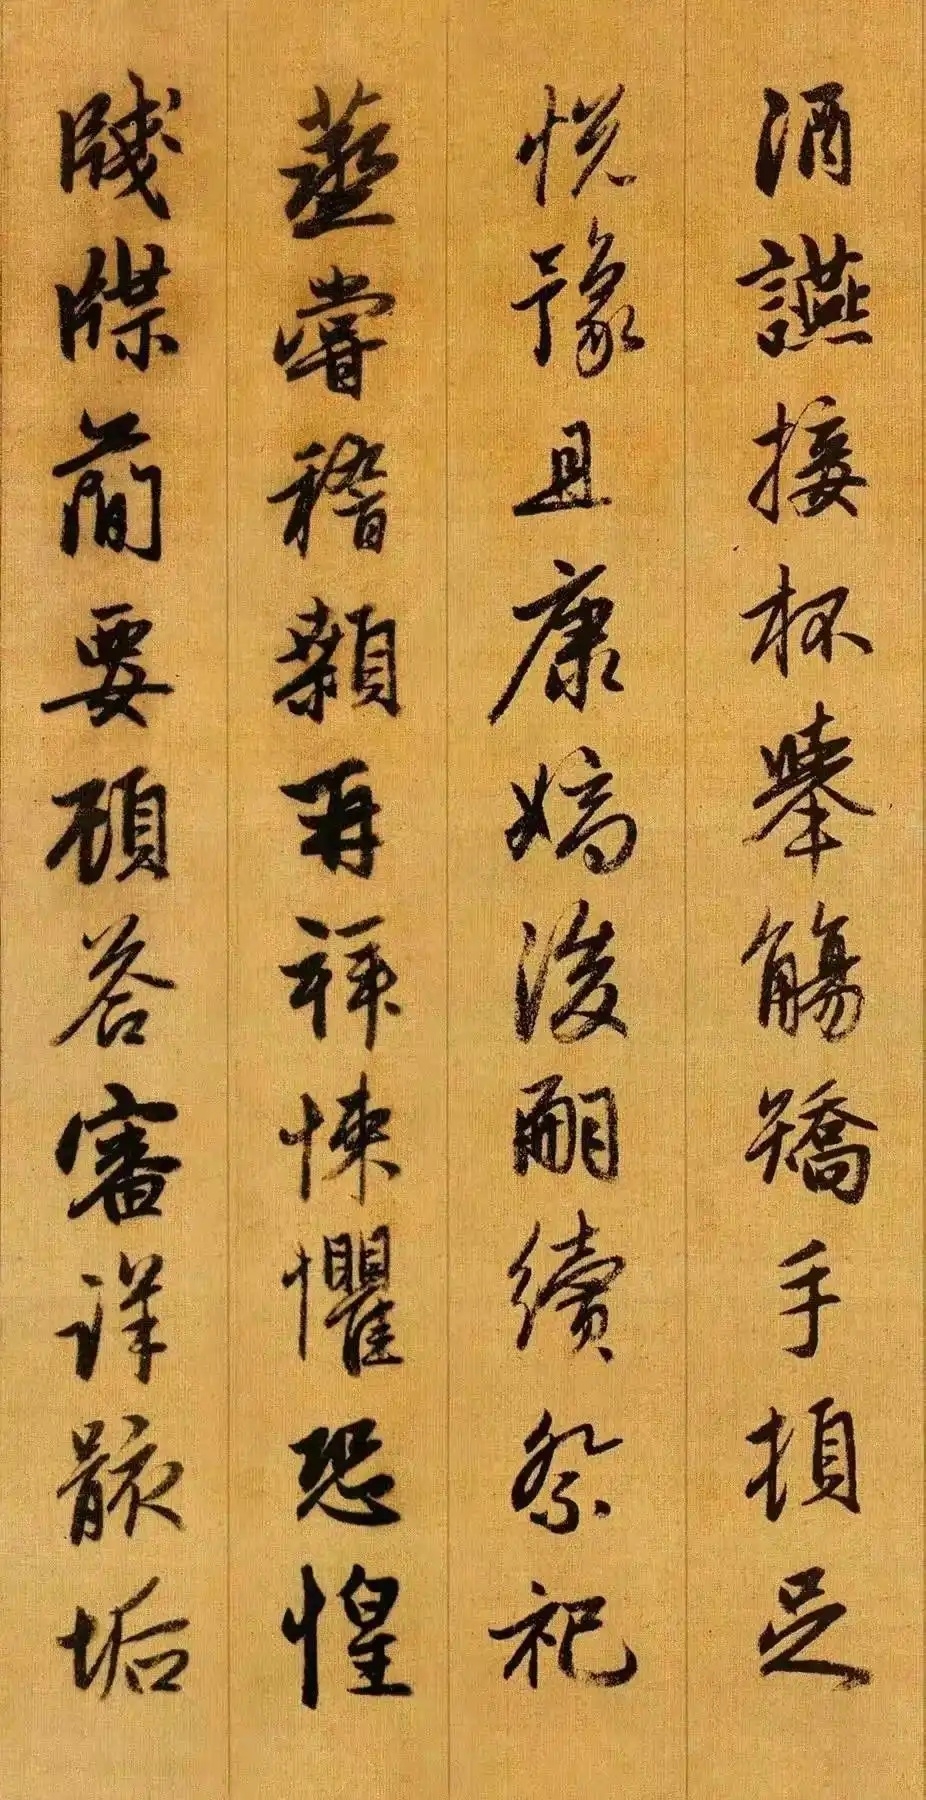 酒讌接杯舉觴矯手頓足
悦豫且康嫡後嗣續祭祀
蒸嘗稽顙再拜悚懼恐惶
牋牒簡要顧答審詳骸垢